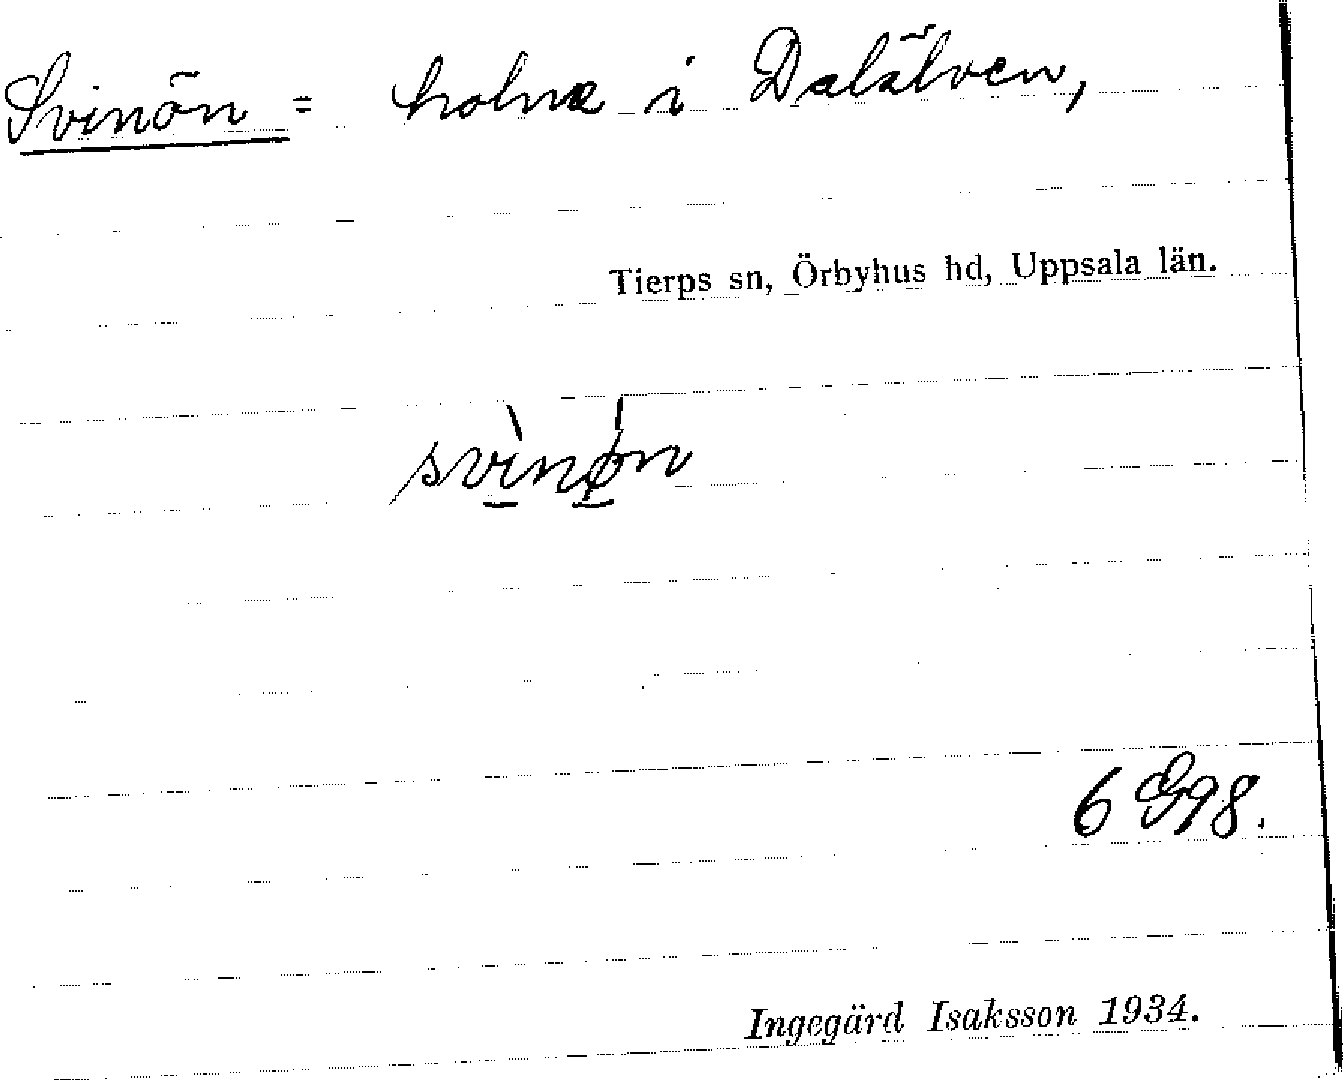 Svinön = holme i Dalälven,
Tierps sn, Örbyhus hd, Uppsala län.
svìnǿn
6 G98.
Ingegärd Isaksson 1934.